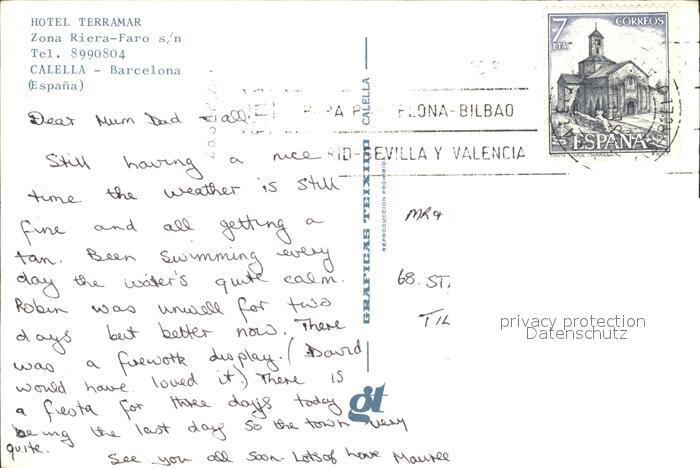 HOTEL TERRAMAR
Zona Riera-Faro s/n
Tel. 8990804
CALELLA - Barcelona
(España)
7
PTA
CORREOS
ESPAÑA
LONA-BILBAO
RID-SEVILLA Y VALENCIA
Dear Mum Dad & all.
Still having a nice
time the weather is still
fine and all getting a
tan. Been swimming every
day the water's quite calm.
Robin was unwell for two
days but better now. There
was a firework display. (David
would have loved it) There is
a fiesta for three days today
being the last day so the town very
quite.
See you all soon. Lots of love
GRAFICAS TEIXIDO
CALELLA
REPRODUCCION PROHIBIDA
gt
MR &
68. ST.
TIL
privacy protection
Datenschutz